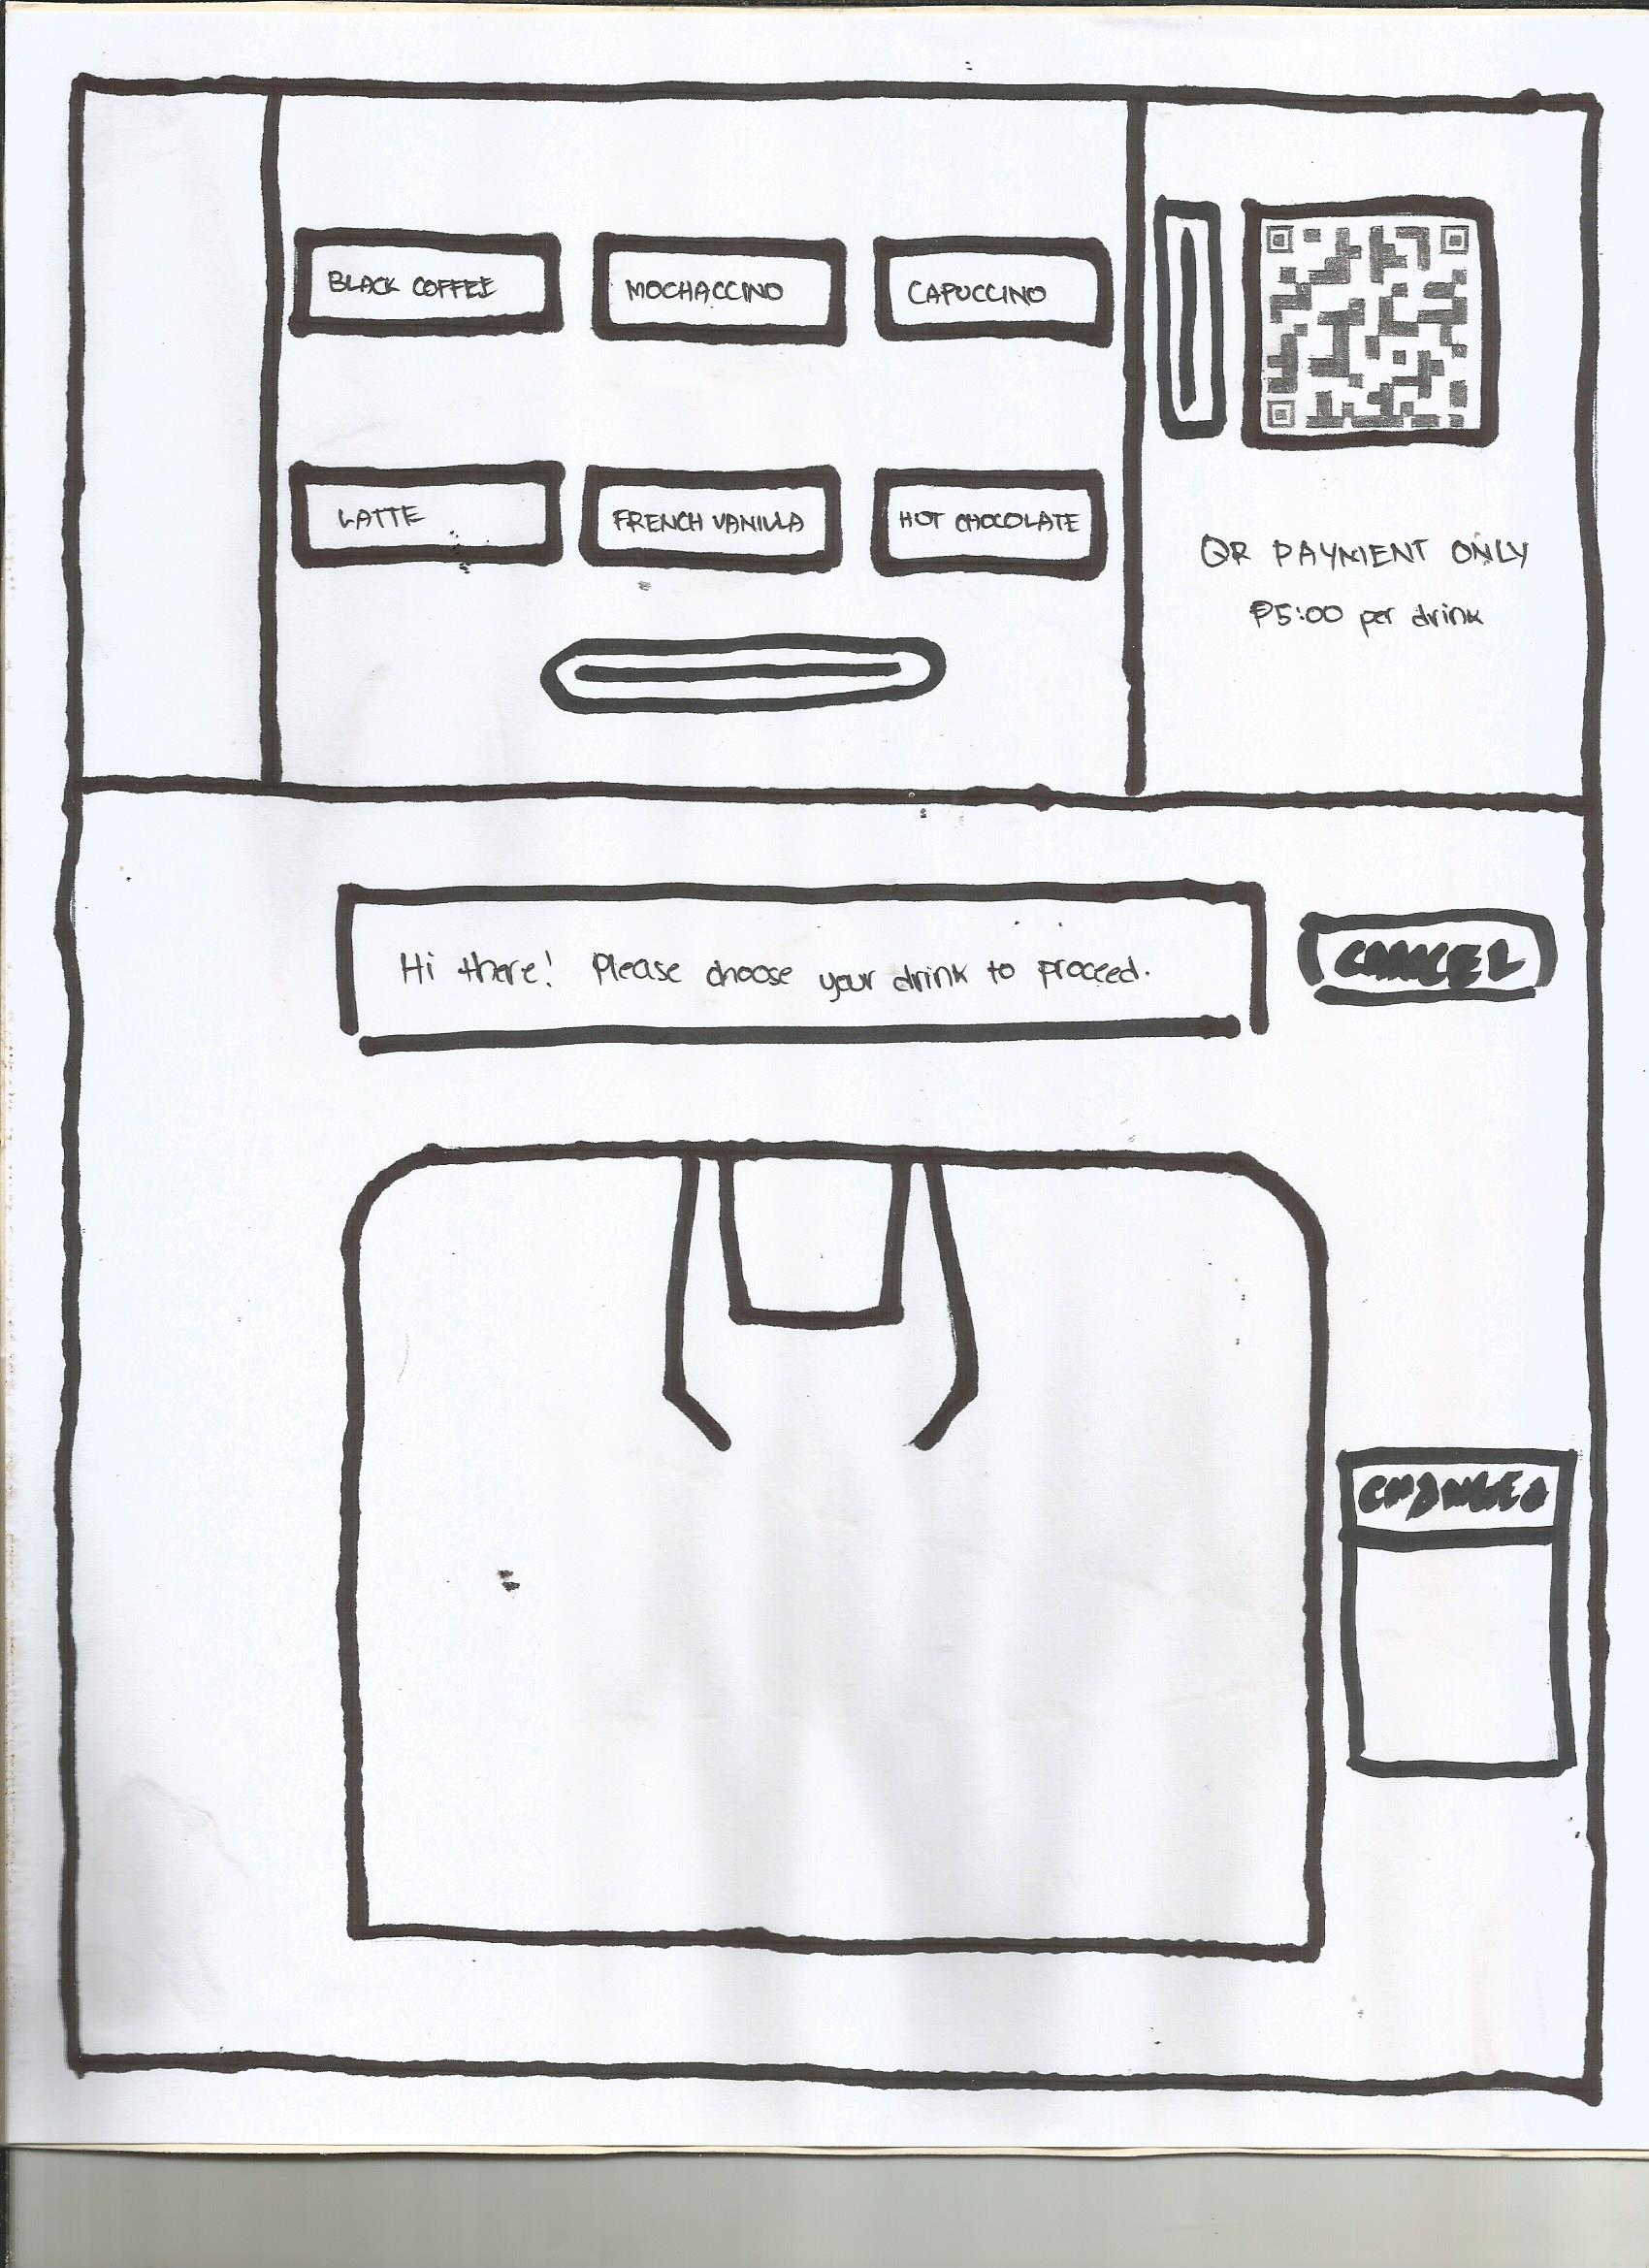 BLACK COFFEE
MOCHACCINO
CAPUCCINO
LATTE
FRENCH VANILLA
HOT CHOCOLATE
QR PAYMENT ONLY
₱5:00 per drink
Hi there! Please choose your drink to proceed.
CANCEL